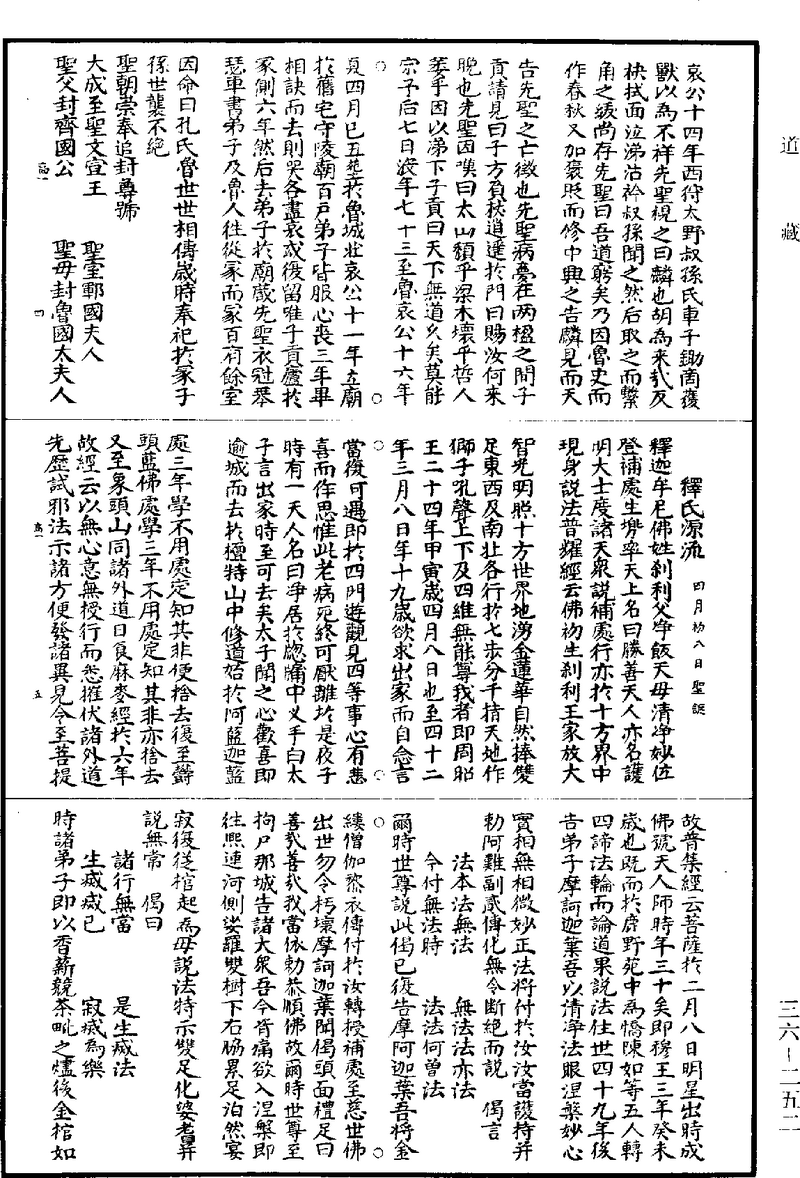 道藏
哀公十四年西狩大野叔孫氏車子鉏商獲
獸以為不祥先聖視之曰麟也胡為來哉反
袂拭面泣涕沾衿叔孫聞之然后取之而繫
角之紱尚存先聖曰吾道窮矣乃因魯史而
作春秋又加褒貶而修中興之告麟見而天
告先聖之亡徵也先聖病夢在两楹之間子
貢請見曰子方負杖逍遥於門曰賜汝何來
晚也先聖因嘆曰太山頹乎梁木壞乎哲人
萎乎因以涕下子貢曰天下無道久矣莫能
宗予后七日歿年七十三至魯哀公十六年
夏四月巳丑葬於魯城北哀公十一年立廟
於舊宅守陵廟百戶弟子皆服心喪三年畢
相訣而去則哭各盡哀或復留唯子貢廬於
冢側六年然后去弟子於廟藏先聖衣冠琴
瑟車書弟子及魯人往從冢而家百有餘室
因命曰孔氏魯世世相傳歲時奉祀於冢子
孫世襲不絶
聖朝崇奉追封尊號
大成至聖文宣王　聖室鄆國夫人
聖父封齊國公　聖母封魯國太夫人
四
釋氏源流　四月初八日聖誕
釋迦牟尼佛姓刹利父凈飯天母清凈妙位
登補處生兠率天上名曰勝善天人亦名護
明大士度諸天衆說補處行亦於十方界中
現身說法普耀經云佛初生刹利王家放大
智光明照十方世界地湧金蓮華自然捧雙
足東西及南北各行於七步分手指天地作
獅子吼聲上下及四維無能尊我者即周昭
王二十四年甲寅歲四月八日也至四十二
年三月八日年十九歲欲求出家而自念言
當復可遇即於四門遊觀見四等事心有悲
喜而作思惟此老病死終可厭離於是夜子
時有一天人名曰淨居於窗牖中叉手白太
子言出家時至可去矣太子聞之心歡喜即
逾城而去於檀特山中修道始於阿藍迦藍
處三年學不用處定知其非便捨去復至欝
頭藍佛處學三年不用處定知其非亦捨去
又至象頭山同諸外道日食麻麥經於六年
故經云以無心意無授行而悉摧伏諸外道
先歷試邪法示諸方便發諸異見今至菩提
五
故普集經云菩薩於二月八日明星出時成
佛號天人師時年三十矣即穆王三年癸未
歲也既而於鹿野苑中為憍陳如等五人轉
四諦法輪而論道果說法住世四十九年後
告弟子摩訶迦葉吾以清淨法眼涅槃妙心
實相無相微妙正法將付於汝汝當護持并
勅阿難副貳傳化無令斷絶而說　偈言
法本法無法　無法法亦法
今付無法時　法法何曽法
爾時世尊說此偈已復告摩阿迦葉吾將金
縷僧伽黎衣傳付於汝轉授補處至慈世佛
出世勿令朽壞摩訶迦葉聞偈頭面禮足曰
善哉善哉我當依勅恭順佛故爾時世尊至
拘尸那城告諸大衆吾今背痛欲入涅槃即
往熙連河側娑羅雙樹下右脇累足泊然宴
寂復從棺起為母說法特示雙足化婆耆并
說無常　偈曰
諸行無常　是生滅法
生滅滅已　寂滅為樂
時諸弟子即以香薪競茶毗之燼後金棺如
三六－二五二